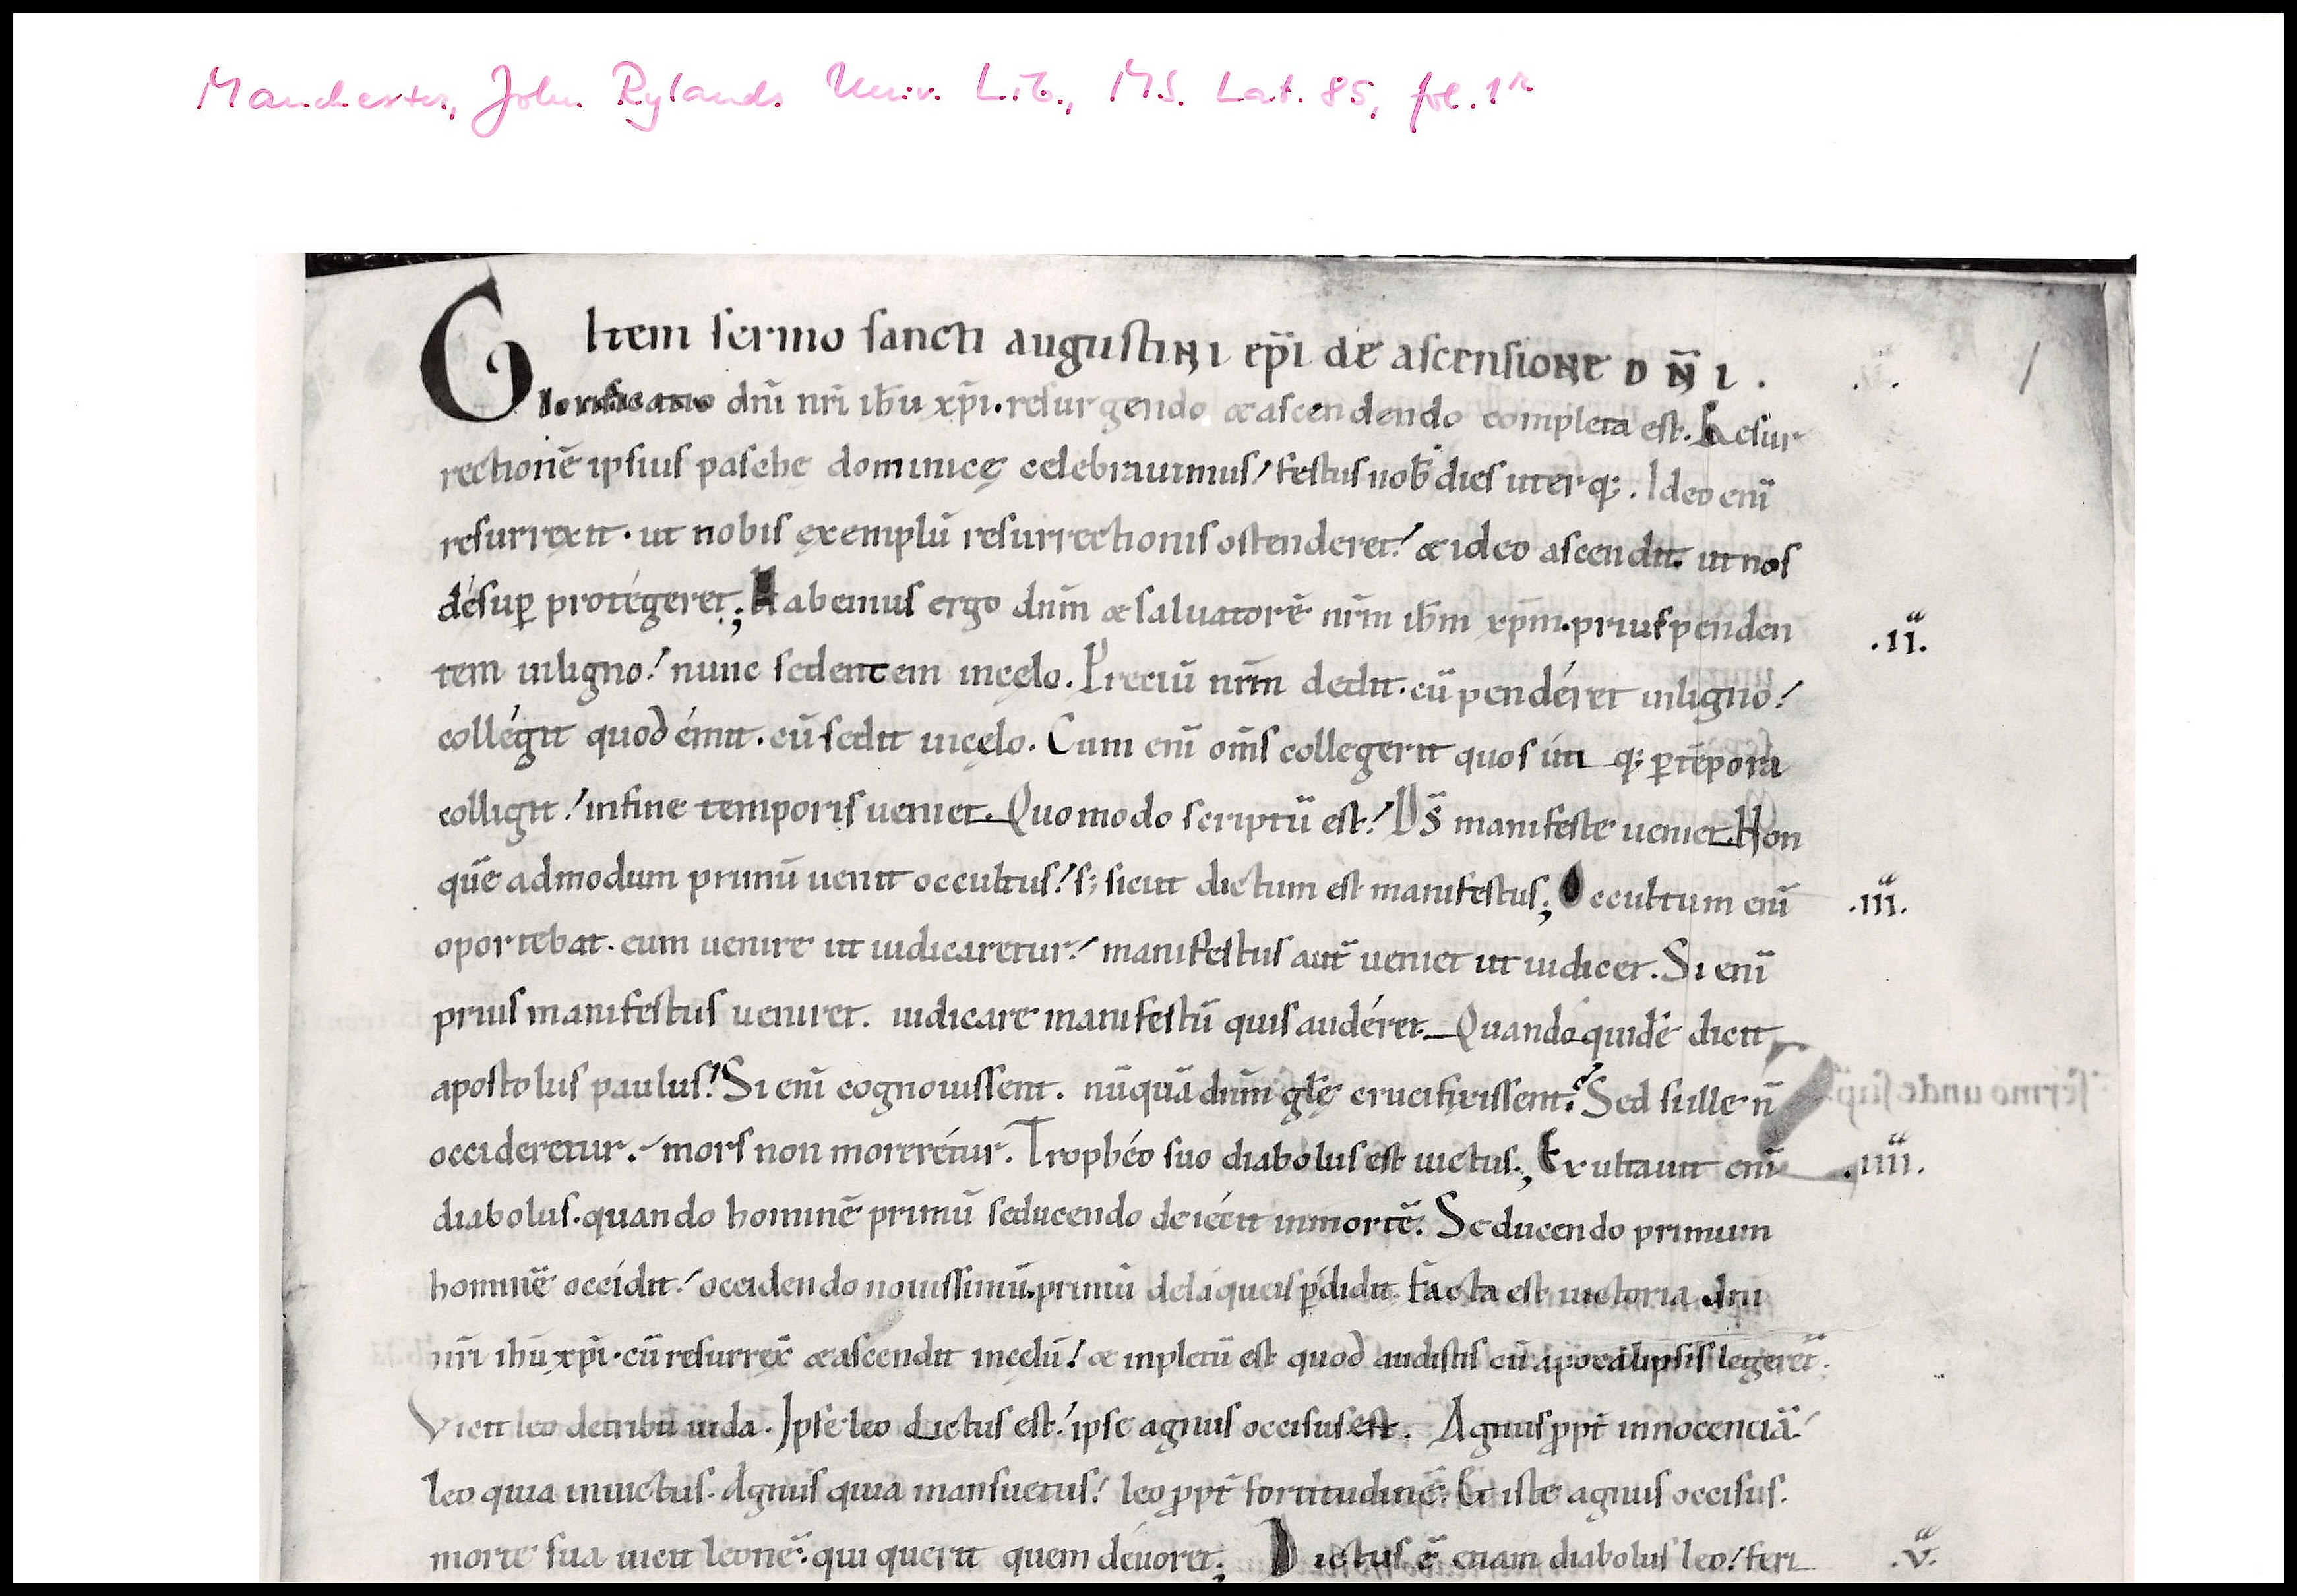 Manchester, John Rylands Univ. Lib., MS. Lat. 85, fol. 1r
Item sermo sancti augustini ep̄i de ascensione DN̄I.
Glorificatio dn̄i nr̄i ih̄u xp̄i. resurgendo & ascendendo completa est. Resur
rectionē ipsius pasche dominicę celebrauimus! festus nob̄ dies uterq;. Ideo enī
resurrexit. ut nobis exemplū resurrectionis ostenderet! & ideo ascendit. ut nos
désup̄ protégeret; Habemus ergo dn̄m & saluatorē nr̄m ih̄m xp̄m. prius penden
.ii.
tem inligno! nunc sedentem incęlo. Preciū nr̄m dedit. cū pendéret inligno!
collégit quod émit. cū sedit incęlo. Cum enī om̄s collegerit quos utiq; p̄ tēpora
colligit! infine temporis ueniet. Quomodo scriptū est! Ds̄ manifeste ueniet. Non
quē admodum primū uenit occultus! s; sicut dictum est manifestus; Occultum enī
.iii.
oportebat. eum uenire ut iudicaretur! manifestus aut̄ ueniet ut iudicet. Si enī
prius manifestus ueniret. iudicare manifestū quis audéret. Quando quidē dicit
apostolus paulus! Si enī cognouissent. nūquā dn̄m glę̄ crucifixissent. Sed si ille n̄
sermo unde sup̄
occideretur. mors non morerétur. Trophéo suo diabolus est uictus; Exultauit enī
.iiii.
diabolus. quando hominē primū seducendo deiécit inmortē. Seducendo primum
hominē occídit! occidendo nouissimū. primū deláqueis p̄didit. Facta est uictoria dn̄i
nr̄i ih̄u xp̄i. cū resurrex̄ & ascendit incęlū! & inpletū est quod audistis cū apocalipsis legeret̄.
Vicit leo detribu iuda. Ipse leo dictus est! ipse agnus occisus est. Agnus ppt̄ innocenciā!
leo quia inuictus. Agnus quia mansuetus! leo ppt̄ fortitudinē. Et iste agnus occisus.
morte sua uicit leonē. qui querit quem déuoret; Dictus ē etiam diabolus leo! feri
.v.